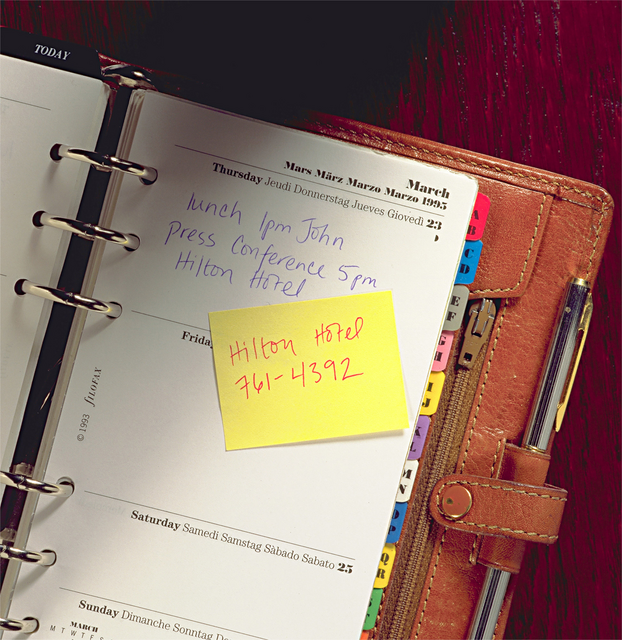 TODAY
March
Mars März Marzo Marzo 1995
Thursday Jeudi Donnerstag Jueves Giovedì 23
lunch 1pm John
press Conference 5pm
Hilton Hotel
Friday
Hilton Hotel
761-4392
© 1993 FILOFAX
Saturday Samedi Samstag Sàbado Sabato 25
Sunday Dimanche Sonntag Do
MARCH
M T W T F S
A
B
C
D
E
F
G
H
I
J
K
L
M
N
O
P
Q
R